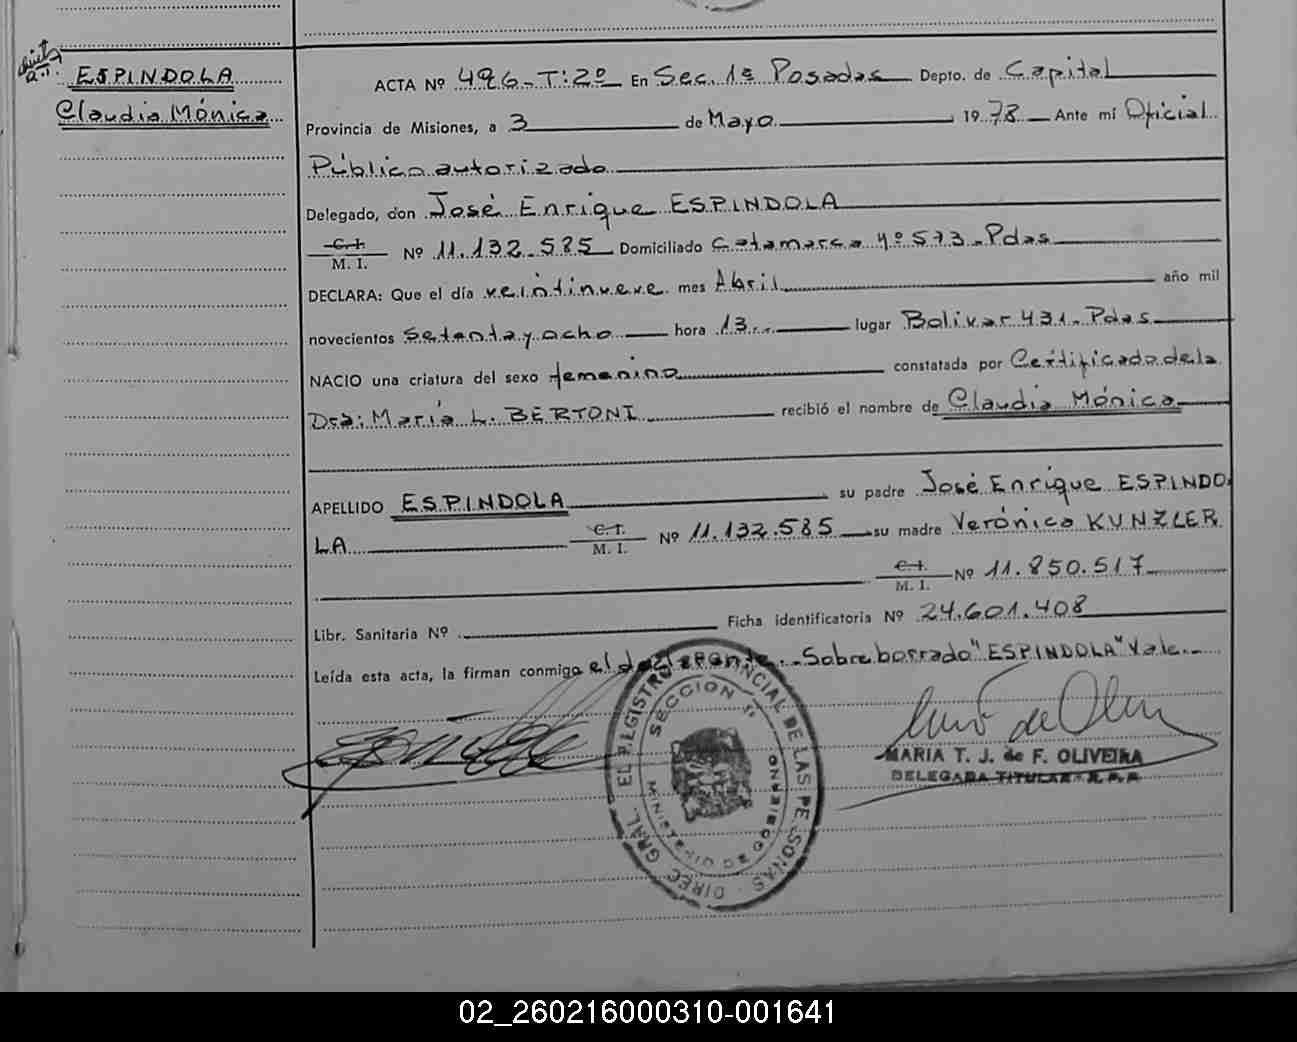 ESPINDOLA
Claudia Mónica
ACTA Nº 496-T:2º En Sec. 1ª Posadas Depto. de Capital
Provincia de Misiones, a 3 de Mayo 1978 Ante mí Oficial
Público autorizado
Delegado, don José Enrique ESPINDOLA
C. I.
M. I. Nº 11.132.585 Domiciliado Catamarca Nº 573. Pdas
DECLARA: Que el día veintinueve mes Abril año mil
novecientos setenta y ocho hora 13.. lugar Bolivar 431. Pdas
NACIO una criatura del sexo femenino constatada por Certificado de la
Dra: María L. BERTONI recibió el nombre de Claudia Mónica
APELLIDO ESPINDOLA su padre José Enrique ESPINDO
LA C. I.
M. I. Nº 11.132.585 su madre Verónica KUNZLER
C. I.
M. I. Nº 11.850.517
Libr. Sanitaria Nº Ficha identificatoria Nº 24.601.408
Leída esta acta, la firman conmigo el declarante. Sobreborrado "ESPINDOLA" Vale.
DIREC. GRAL. EL REGISTRO PROVINCIAL DE LAS PERSONAS
SECCION 1ª
MINISTERIO DE GOBIERNO
MARIA T. J. de F. OLIVEIRA
DELEGADA TITULAR R. P. P.
02_260216000310-001641